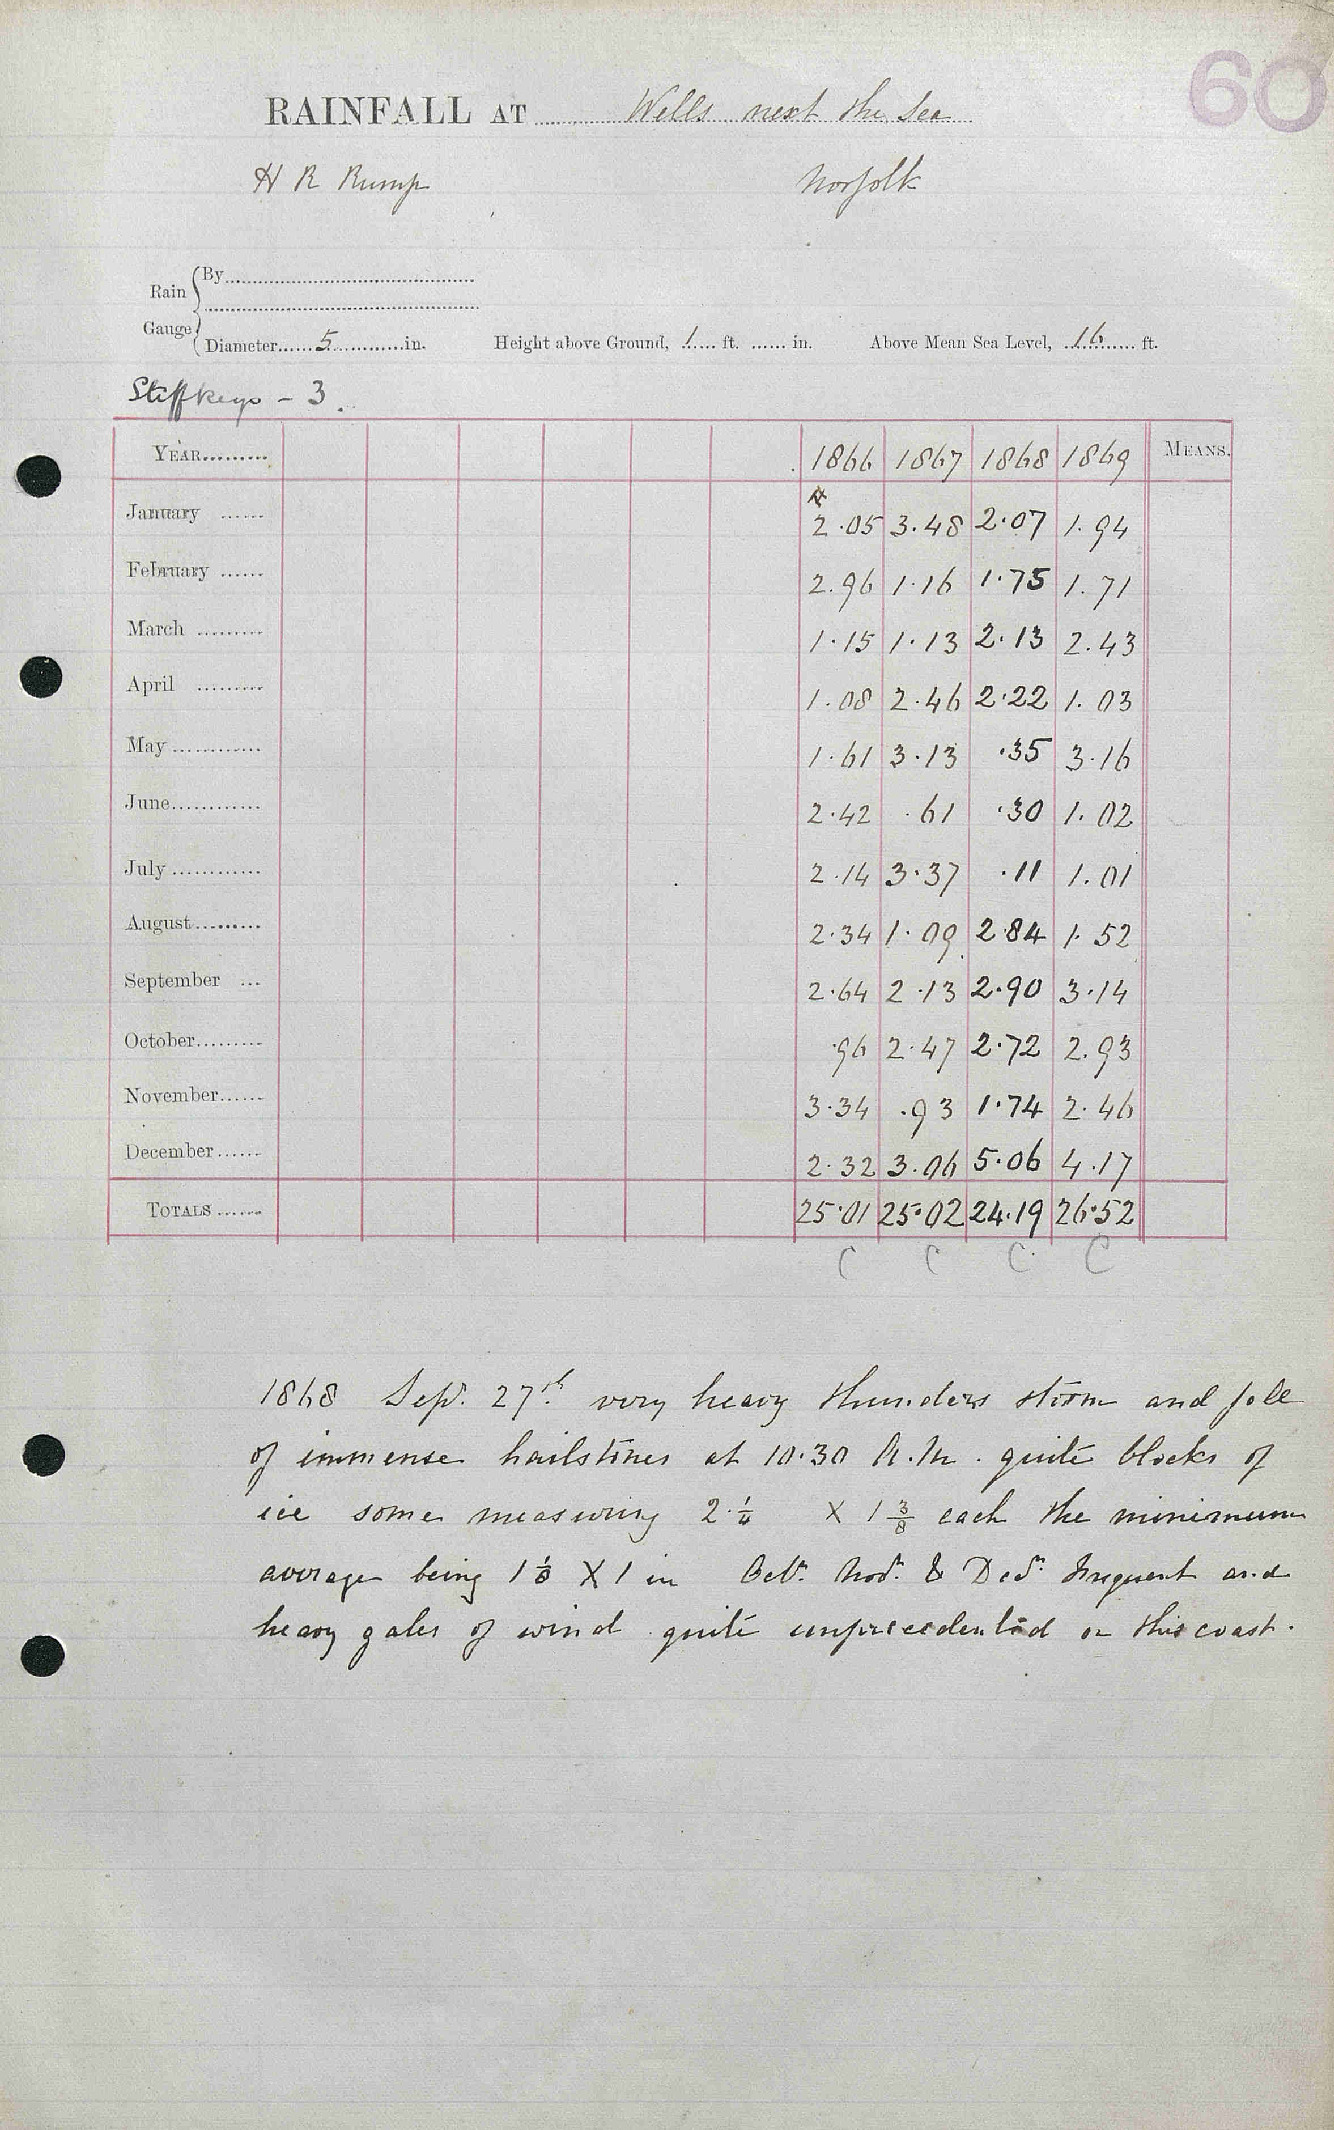 60
RAINFALL AT Wells next the Sea
H R Rump Norfolk
Rain Gauge { By
Diameter 5 in. Height above Ground, 1 ft. in. Above Mean Sea Level, 16 ft.
Stiffkey - 3.
YEAR 1866 1867 1868 1869 MEANS.
January 2.05 3.48 2.07 1.94
February 2.96 1.16 1.75 1.71
March 1.15 1.13 2.13 2.43
April 1.08 2.46 2.22 1.03
May 1.61 3.13 .35 3.16
June 2.42 .61 .30 1.02
July 2.14 3.37 .11 1.01
August 2.34 1.09 2.84 1.52
September 2.64 2.13 2.90 3.14
October .96 2.47 2.72 2.93
November 3.34 .93 1.74 2.46
December 2.32 3.06 5.06 4.17
TOTALS 25.01 25.02 24.19 26.52
C C C C
1868 Sepr. 27th very heavy thunders storm and fall
of immense hailstones at 10.30 A.M. quite blocks of
ice some measuring 2 1/4 X 1 3/8 each the minimum
average being 1 1/8 X 1 in Octr. Novr. & Decr. frequent and
heavy gales of wind quite unprecedented on this coast.